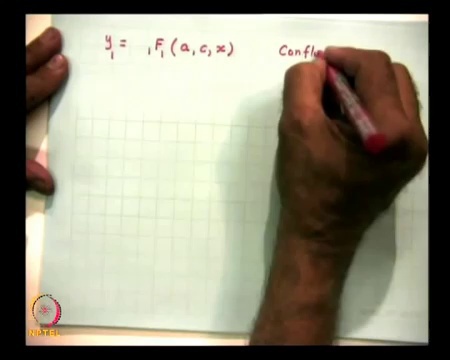 y₁ = ₁F₁ (a, c, x) Confl
NPTEL